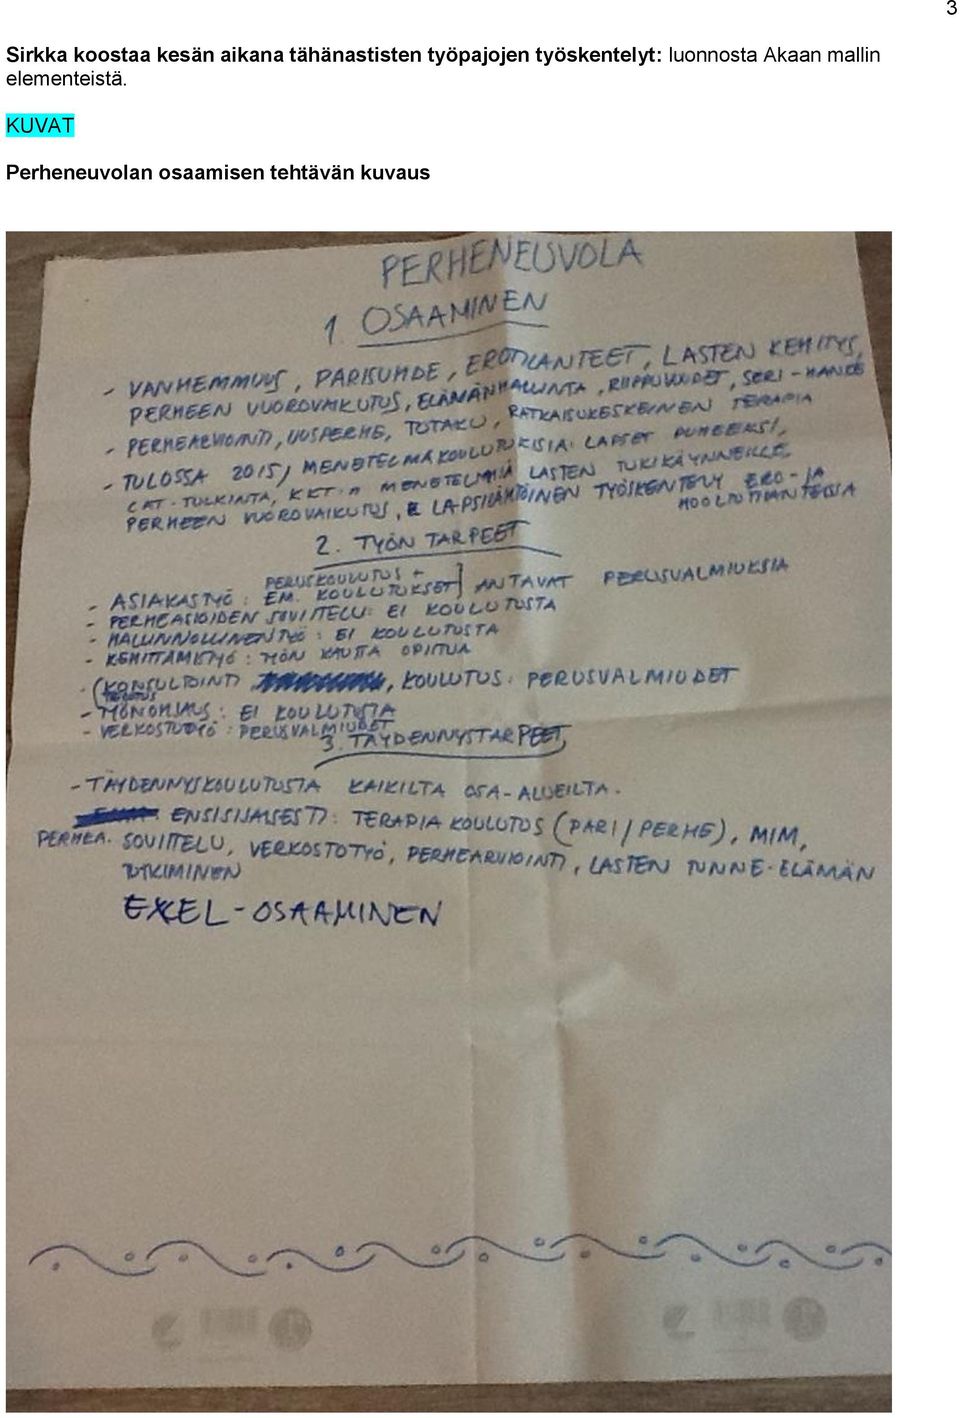 3
Sirkka koostaa kesän aikana tähänastisten työpajojen työskentelyt: luonnosta Akaan mallin
elementeistä.
KUVAT
Perheneuvolan osaamisen tehtävän kuvaus
PERHENEUVOLA
1. OSAAMINEN
- VANHEMMUUS, PARISUHDE, EROTILANTEET, LASTEN KEHITYS,
PERHEEN VUOROVAIKUTUS, ELÄMÄNHALLINTA, RIIPPUVUUDET, SERI-HANKE
- PERHEARVIOINTI, UUSPERHE, TOTAKU, RATKAISUKESKEINEN TERAPIA
- TULOSSA 2015/ MENETELMÄKOULUTUKSIA: LAPSET PUHEEKSI,
CAT-TULKINTA, KKT:n MENETELMIÄ LASTEN TUKIKÄYNNEILLE,
PERHEEN VUOROVAIKUTUS, LAPSILÄHTÖINEN TYÖSKENTELY ERO- JA
HOOLTOTILANTEISSA
2. TYÖN TARPEET
PERUSKOULUTUS +
- ASIAKASTYÖ: EM. KOULUTUKSET] ANTAVAT PERUSVALMIUKSIA
- PERHEASIOIDEN SOVITTELU: EI KOULUTUSTA
- HALLINNOLLINEN TYÖ: EI KOULUTUSTA
- KEHITTÄMISTYÖ: TYÖN KAUTTA OPITUA
- (KONSULTOINTI, KOULUTUS: PERUSVALMIUDET
- TYÖNOHJAUS: EI KOULUTUSTA
- VERKOSTOTYÖ: PERUSVALMIUDET
3. TÄYDENNYSTARPEET
- TÄYDENNYSKOULUTUSTA KAIKILTA OSA-ALUEILTA.
ENSISIJAISESTI: TERAPIAKOULUTUS (PARI/PERHE), MIM,
PERHEA. SOVITTELU, VERKOSTOTYÖ, PERHEARVIOINTI, LASTEN TUNNE-ELÄMÄN
TUTKIMINEN
EXEL-OSAAMINEN